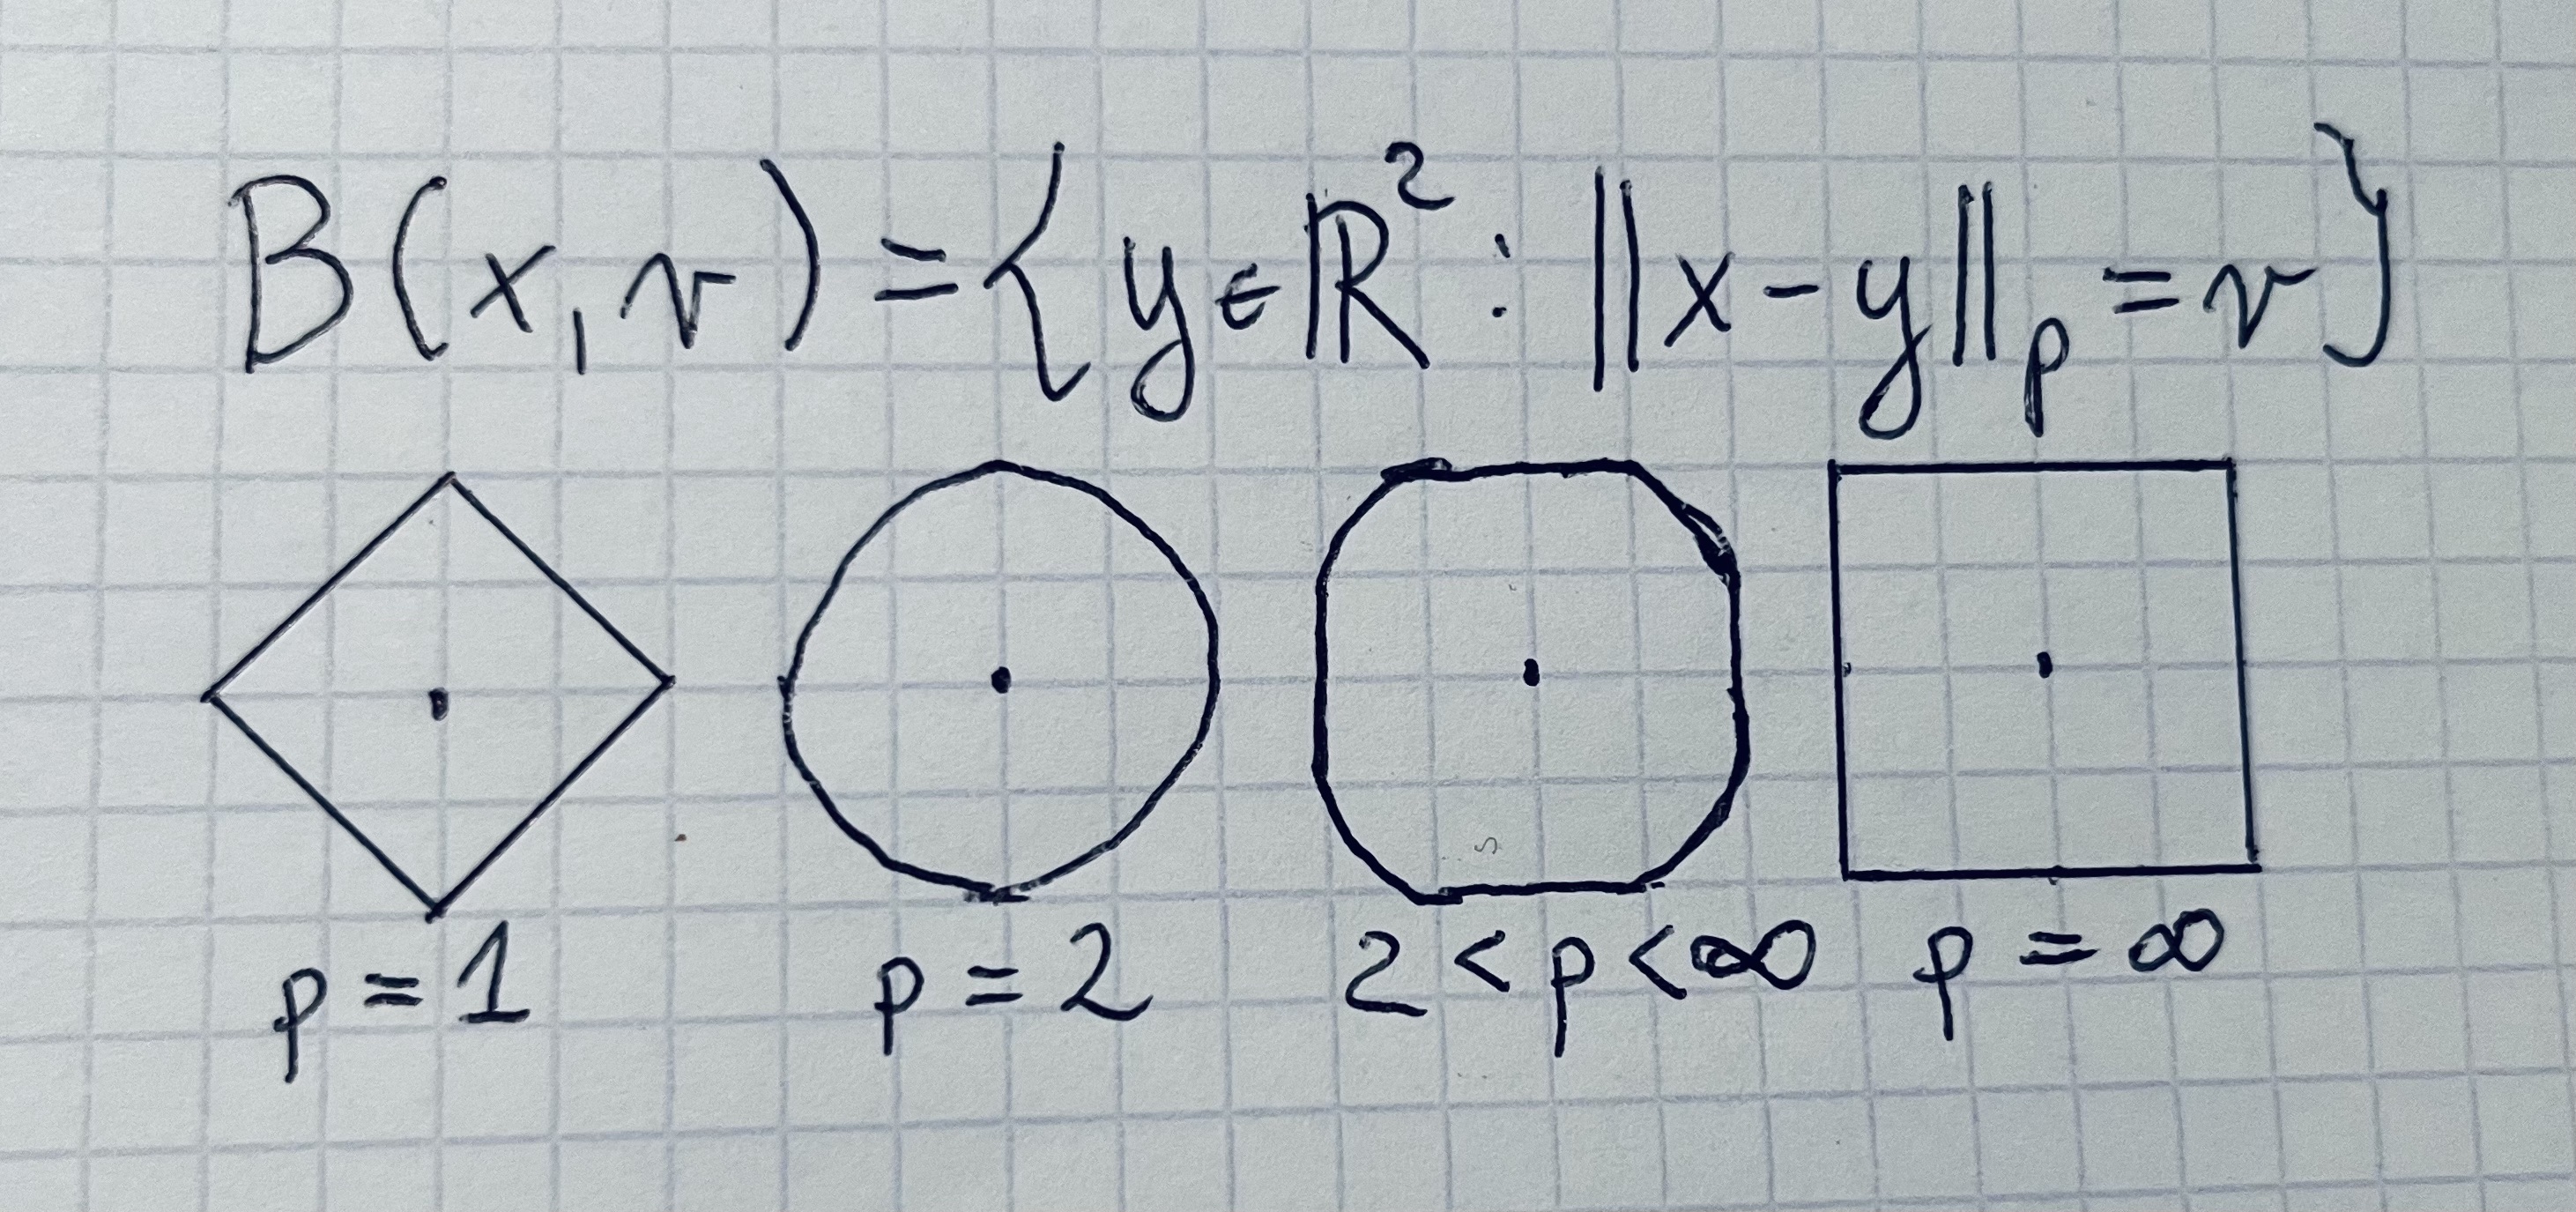 B(x, r) = { y ∈ ℝ² : ||x - y||ₚ = r }
p = 1 p = 2 2 < p < ∞ p = ∞